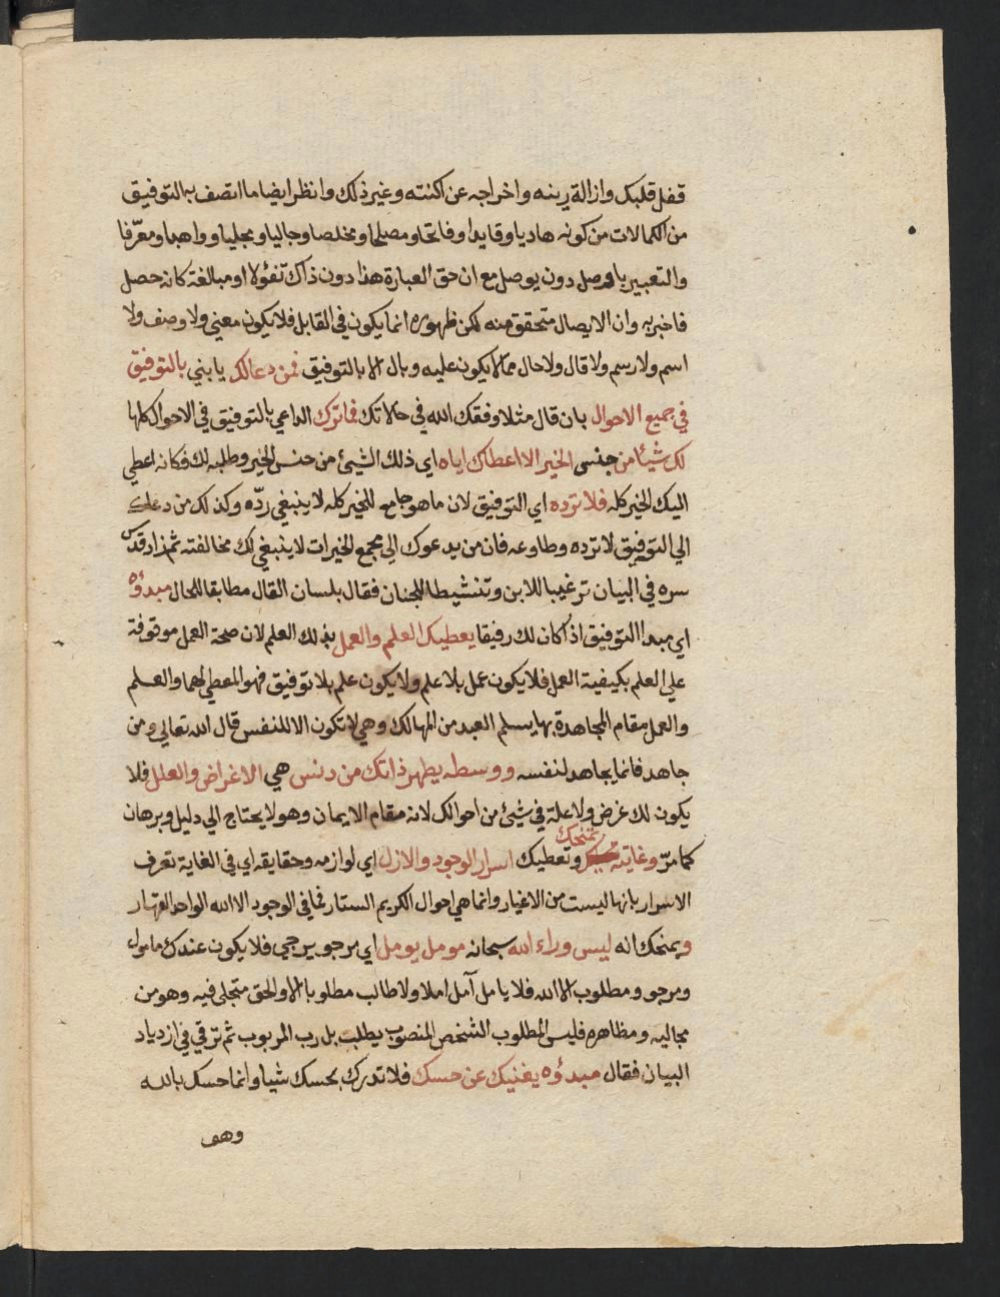 قفل قلبك وازالة رينه واخراجه عن اكنته وغير ذلك وانظر ايضا ما اتصف به التوفيق
من الكمالات من كونه هاديا وقايدا وفاتحا ومصلحا ومخلصا وجاليا ومجليا وواهبا ومعرّفا
والتعبير باوصل دون يوصل مع ان حق العبارة هذا دون ذاك تفؤلا او مبالغة كانه حصل
فاخبر به وان الايصال متحقق منه لكن ظهوره انما يكون في القابل فلا يكون معني ولا وصف ولا
اسم ولا رسم ولا قال ولا حال مما لا يكون عليه وبال الا بالتوفيق فمن دعا لك يا بني بالتوفيق
في جميع الاحوال بان قال مثلا وفقك الله في حالاتك فما ترك الداعي بالتوفيق في الاحوال كلها
لك شيئا من جنس الخير الا اعطاك اياه اي ذلك الشيئ من جنس الخير وطلبه لك فكانه اعطي
اليك الخير كله فلا ترده اي التوفيق لان ما هو جامع للخير كله لا ينبغي ردّه وكذلك من دعاك
الي التوفيق لا ترده وطاوعه فان من يدعوك الي مجمع الخيرات لا ينبغي لك مخالفته ثم زاد قدس
سره في البيان ترغيبا للابن وتنشيطا للجنان فقال بلسان القال مطابقا للحال مبدؤه
اي مبدا التوفيق اذا كان لك رفيقا يعطيك العلم والعمل بذلك العلم لان صحة العمل موقوفة
علي العلم بكيفية العمل فلا يكون عمل بلا علم ولا يكون علم بلا توفيق فهو المعطي لهما والعلم
والعمل مقام المجاهدة بها يسلم العبد من المهالك وهي لا تكون الا للنفس قال الله تعالي ومن
جاهد فانما يجاهد لنفسه ووسطه يطهر ذاتك من دنس هي الاغراض والعلل فلا
يكون لك غرض ولا علة في شيئ من احوالك لانه مقام الايمان وهو لا يحتاج الي دليل وبرهان
كما مرّ وغايته تمنحك وتعطيك اسرار الوجود والازل اي لوازمه وحقايقه اي في الغاية تعرف
الاسرار بانها ليست من الاغيار وانما هي احوال الكريم الستار فما في الوجود الا الله الواحد القهار
ويمنحك انه ليس وراء الله سبحانه مومل يومل اي مرجو يرجي فلا يكون عندك مامول
ومرجو ومطلوب الا الله فلا يامل آمل املا ولا طالب مطلوبا الا والحق متجلي فيه وهو من
مجاليه ومظاهره فليس المطلوب الشخص المنصوب يطلب بل رب المربوب ثم ترقي في ازدياد
البيان فقال مبدؤه يغنيك عن حسك فلا تدرك بحسك شيا وانما حسك بالله
وهو